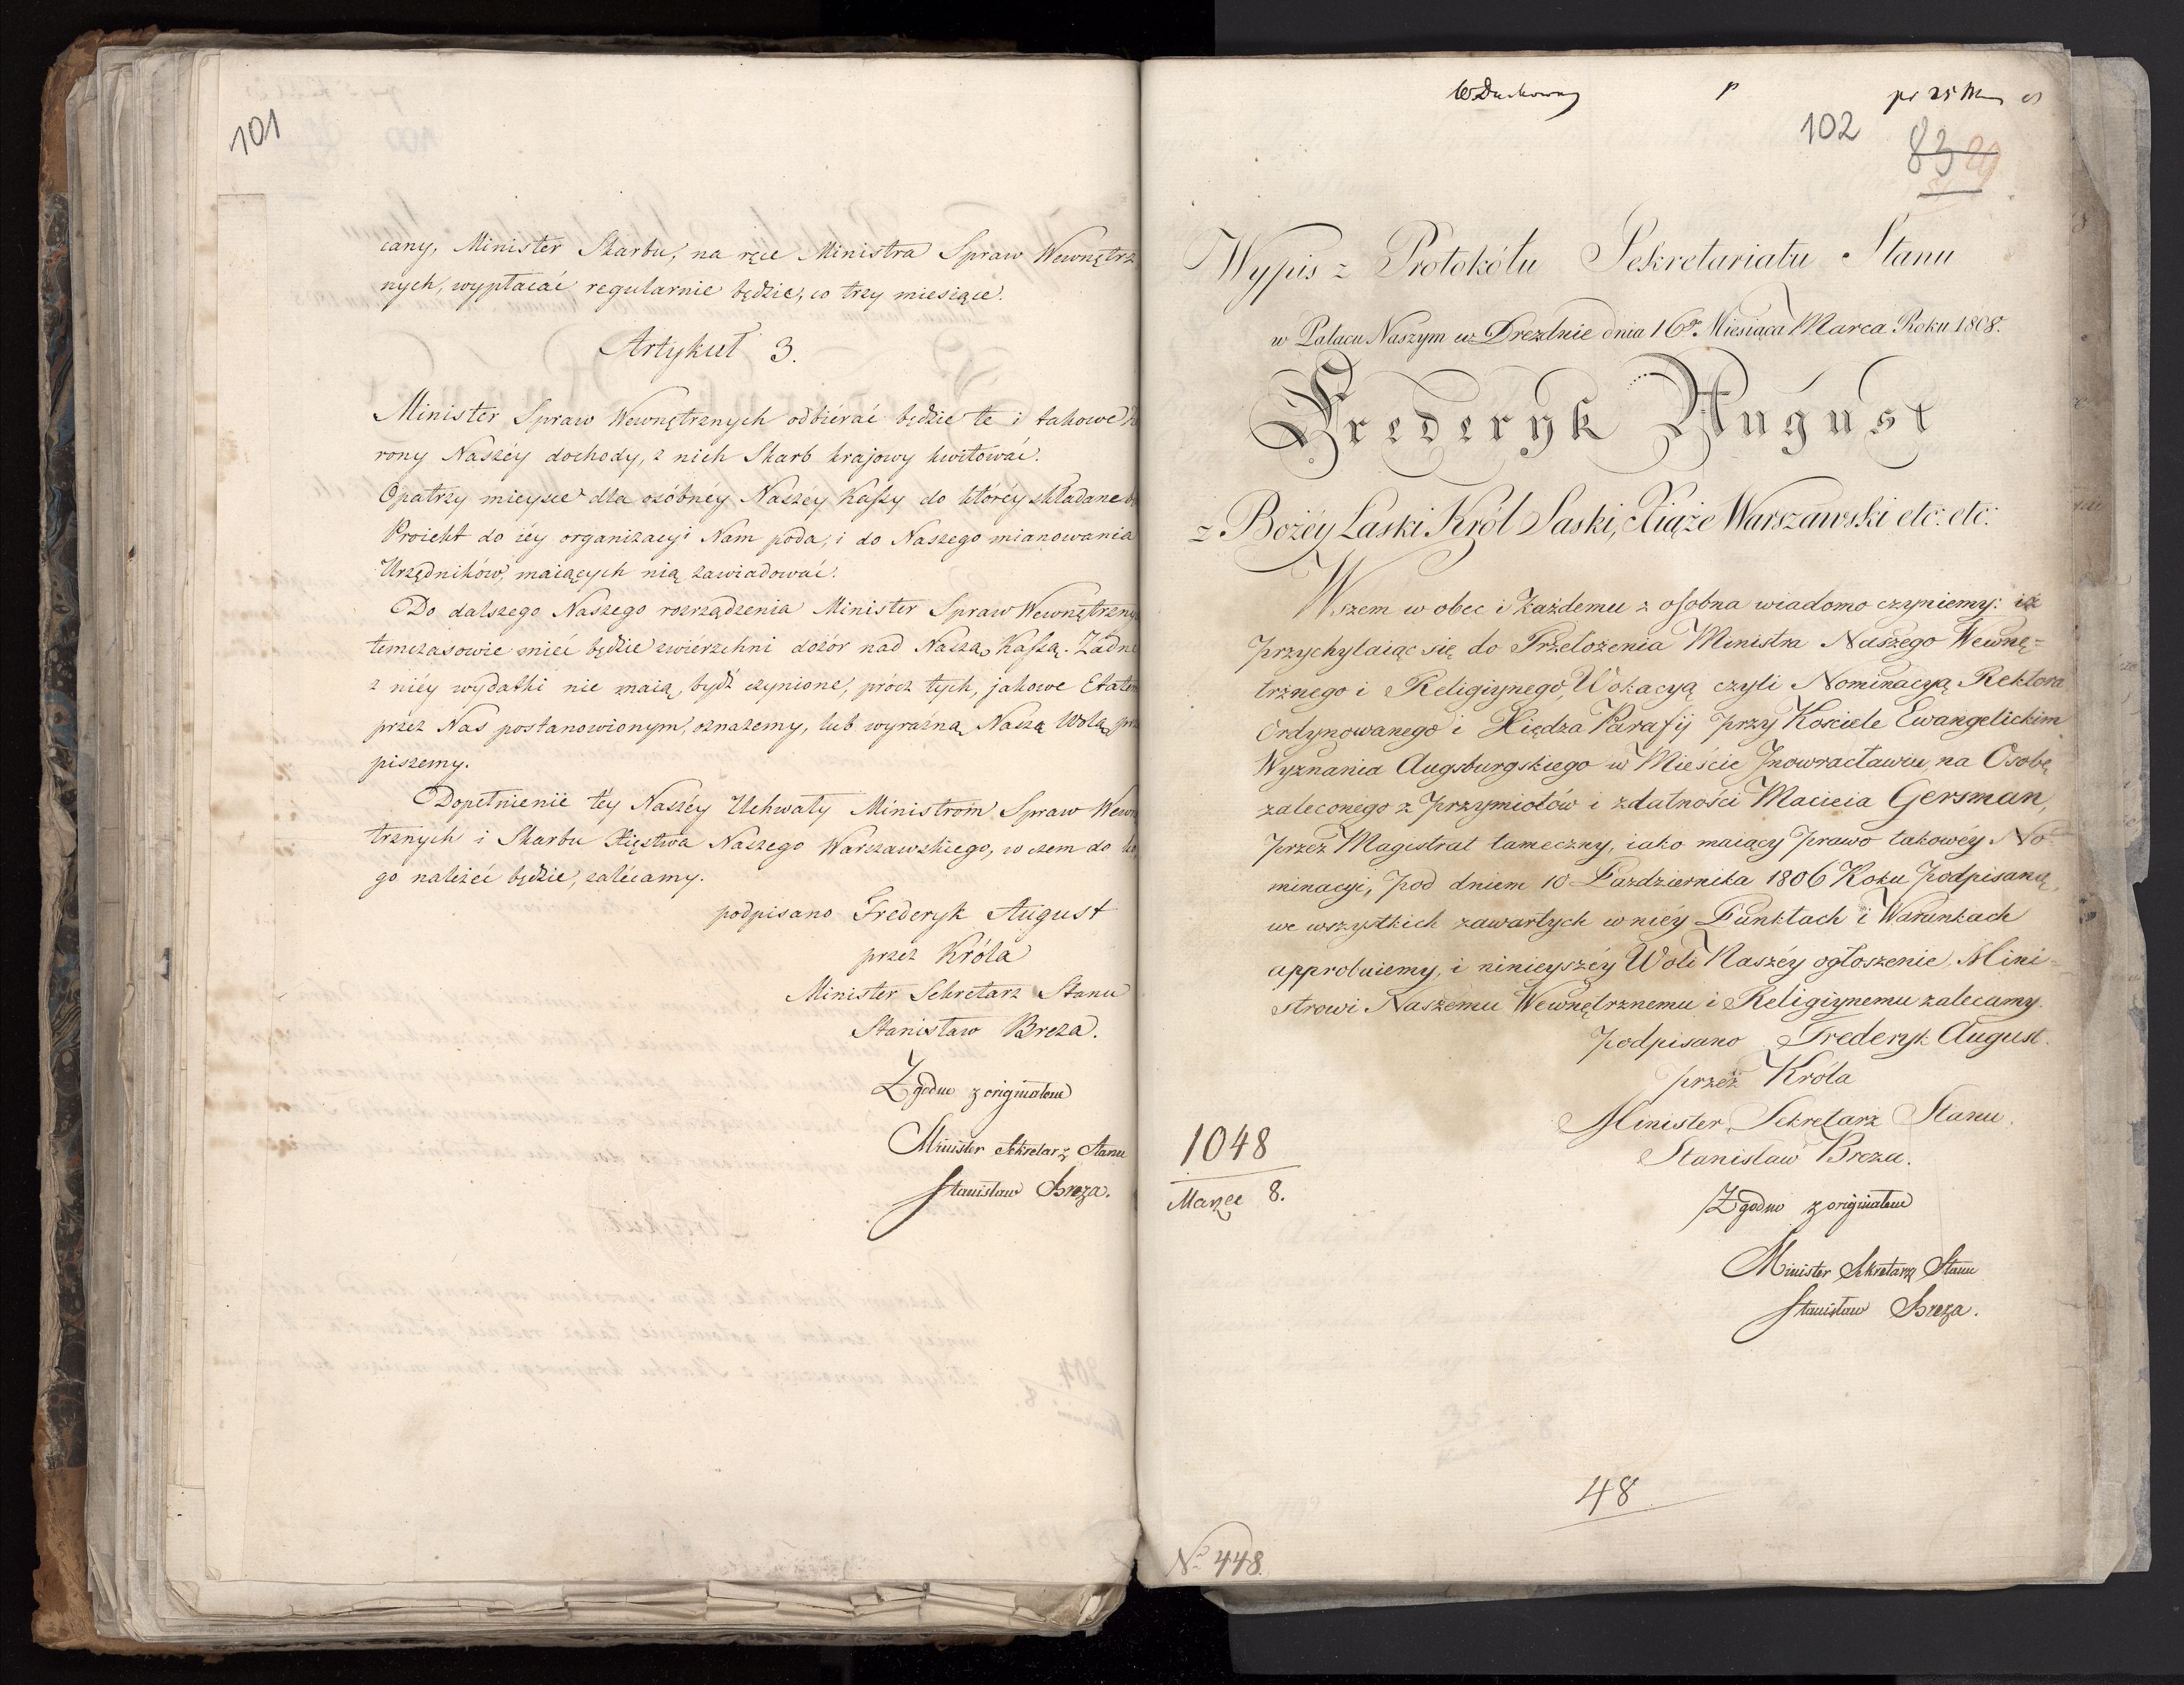 101
cany, Minister Skarbu, na ręce Ministra Spraw Wewnętrz
nych, wypłacać regularnie będzie, co trzy miesiące.
Artykuł 3.
Minister Spraw Wewnętrznych odbiérać będzie te i takowe
rony Naszéy dochody, z nich Skarb krajowy kwitować.
Opatrzy mieysce dla osóbnéy Naszéy Kassy do któréy składane
Proiekt do iéy organizacyi Nam poda, i do Naszego mianowania
Urzędników, maiących nią zawiadować.
Do dalszego Naszego rozrządzenia Minister Spraw Wewnętrzny
temczasowie mieć będzie zwiérzchni dozór nad Naszą Kassą. Żadne
z niéy wydatki nie maią, bydź czynione, prócz tych, jakowe Etatem
przez Nas postanowionym, oznażemy, lub wyraźną Naszą Wolą, prze
piszemy.
Dopełnienie téy Naszéy Uchwały Ministrom Spraw Wewnę
trznych i Skarbu Xięstwa Naszego Warszawskiego, w czem do ko
go należéć będzie, zalécamy.
podpisano Frederyk August
przez Króla
Minister Sekretarz Stanu
Stanisław Breza.
Zgodno z originałem
Minister Sekretarz Stanu
Stanisław Breza.
102
83
Wypis z Protokółu Sekretariatu Stanu
w Pałacu Naszym w Dreznie dnia 16go Miesiąca Marca Roku 1808.
Frederyk August
z Bożéy Łaski Król Saski, Xiąże Warszawski etc: etc:
Wszem w obec i każdemu z osobna wiadomo czyniemy: iż
przychylaiąc się do Przełożenia Ministra Naszego Wewnę=
trznego i Religiynego, Wokacyą czyli Nominacyą Rektora
Ordynowanego i Xiędza Parafij przy Kościele Ewangelickim
Wyznania Augsburgskiego w Mieście Jnowracławiu, na Osobę
zaleconego z przymiotów i zdatności Macieia Gersman,
przez Magistrat tameczny, iako maiący prawo takowéy No=
minacyi, pod dniem 10 Października 1806 Roku podpisaną,
we wszystkich zawartych w niéy Punktach i Warunkach
approbuiemy, i ninieyszéy Woli Naszéy ogłoszenie, Mini=
strowi Naszemu Wewnętrznemu i Religiynemu zalecamy.
podpisano Frederyk August.
przez Króla
Minister Sekretarz Stanu.
Stanisław Breza.
1048
Marzec 8.
Zgodno z originałem
Minister Sekretarz Stanu
Stanisław Breza.
48
No 448.